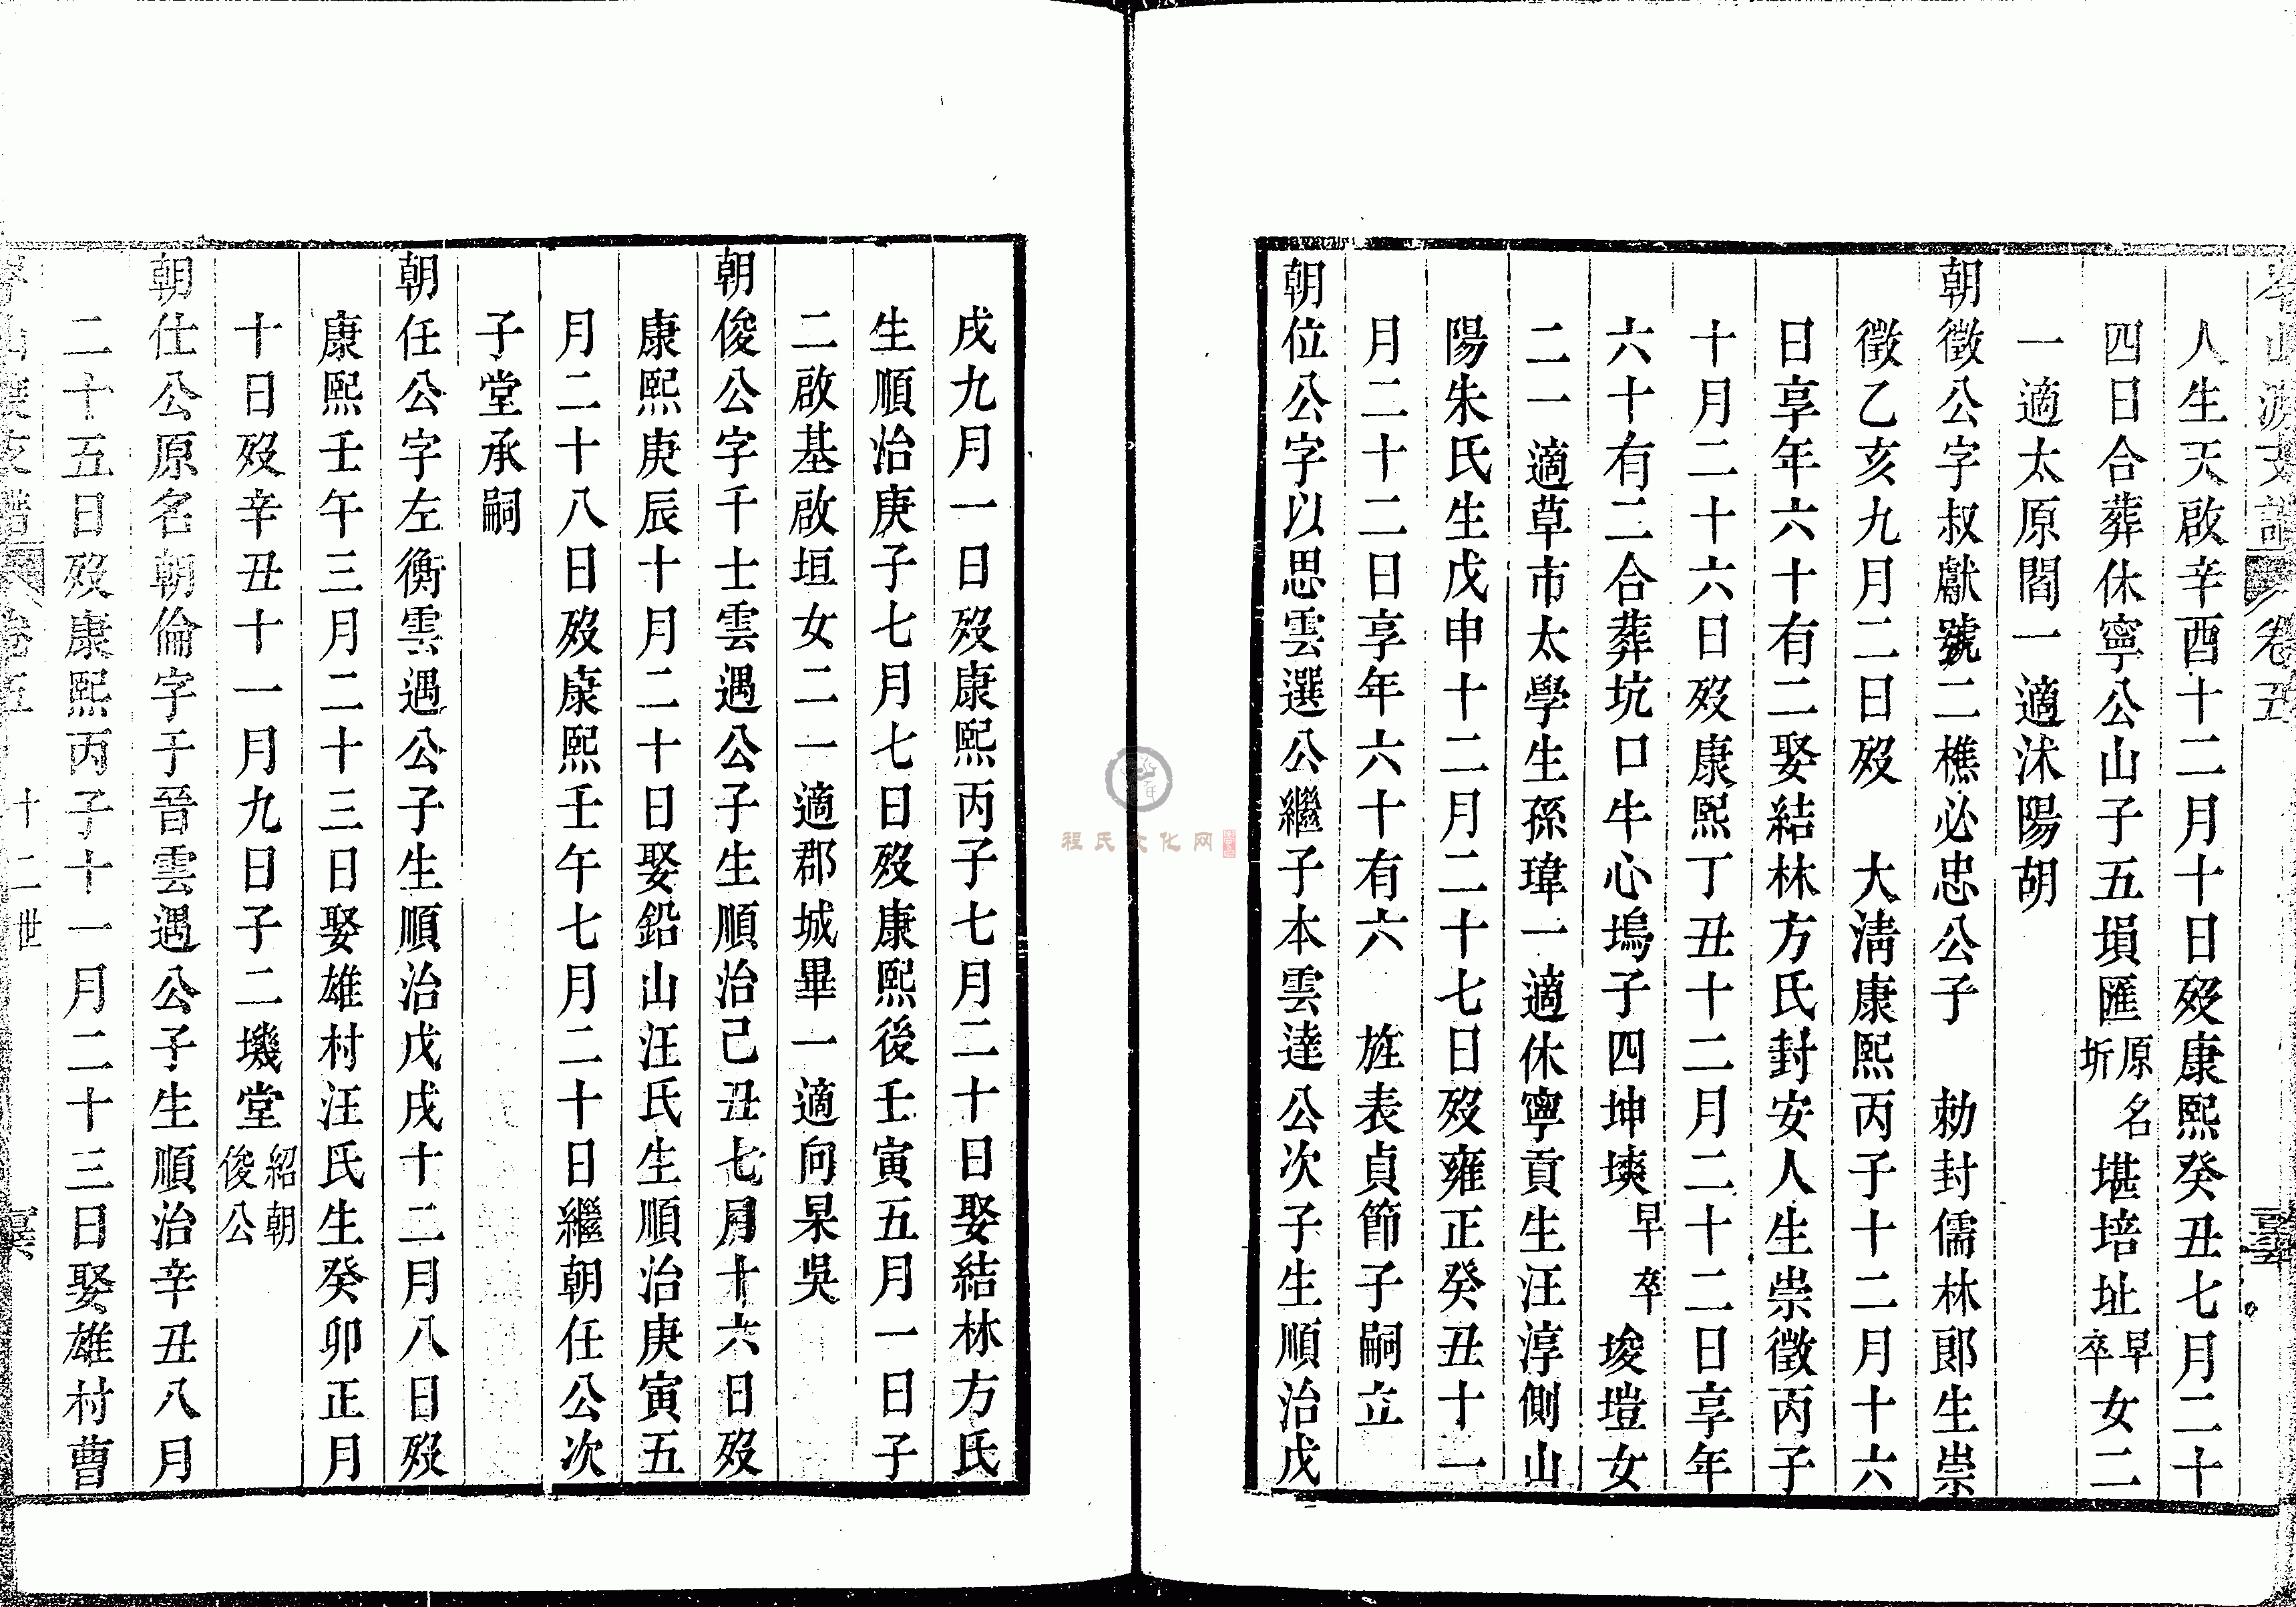 岑山渡支譜 卷五
人生天啟辛酉十二月十日歿康熙癸丑七月二十
四日合葬休寧公山子五塤匯原名圻堪培址早卒女二
一適太原閻一適沭陽胡
朝徵公字叔獻號二樵必忠公子 勅封儒林郎生崇
徵乙亥九月二日歿 大淸康熙丙子十二月十六
日享年六十有二娶結林方氏封安人生崇徵丙子
十月二十六日歿康熙丁丑十二月二十二日享年
六十有二合葬坑口牛心塢子四坤塽早卒埈塏女
二一適草市太學生孫瑋一適休寧貢生汪淳側山
陽朱氏生戊申十二月二十七日歿雍正癸丑十一
月二十二日享年六十有六 旌表貞節子嗣立
朝位公字以思雲選公繼子本雲達公次子生順治戊
戌九月一日歿康熙丙子七月二十日娶結林方氏
生順治庚子七月七日歿康熙後壬寅五月一日子
二啟基啟垣女二一適郡城畢一適向杲吳
朝俊公字千士雲遇公子生順治己丑七月十六日歿
康熙庚辰十月二十日娶鉛山汪氏生順治庚寅五
月二十八日歿康熙壬午七月二十日繼朝任公次
子堂承嗣
朝任公字左衡雲遇公子生順治戊戌十二月八日歿
康熙壬午三月二十三日娶雄村汪氏生癸卯正月
十日歿辛丑十一月九日子二墢堂紹朝俊公
朝仕公原名朝倫字于晉雲遇公子生順治辛丑八月
二十五日歿康熙丙子十一月二十三日娶雄村曹
岑山渡支譜 卷五 十二世
程氏文化网